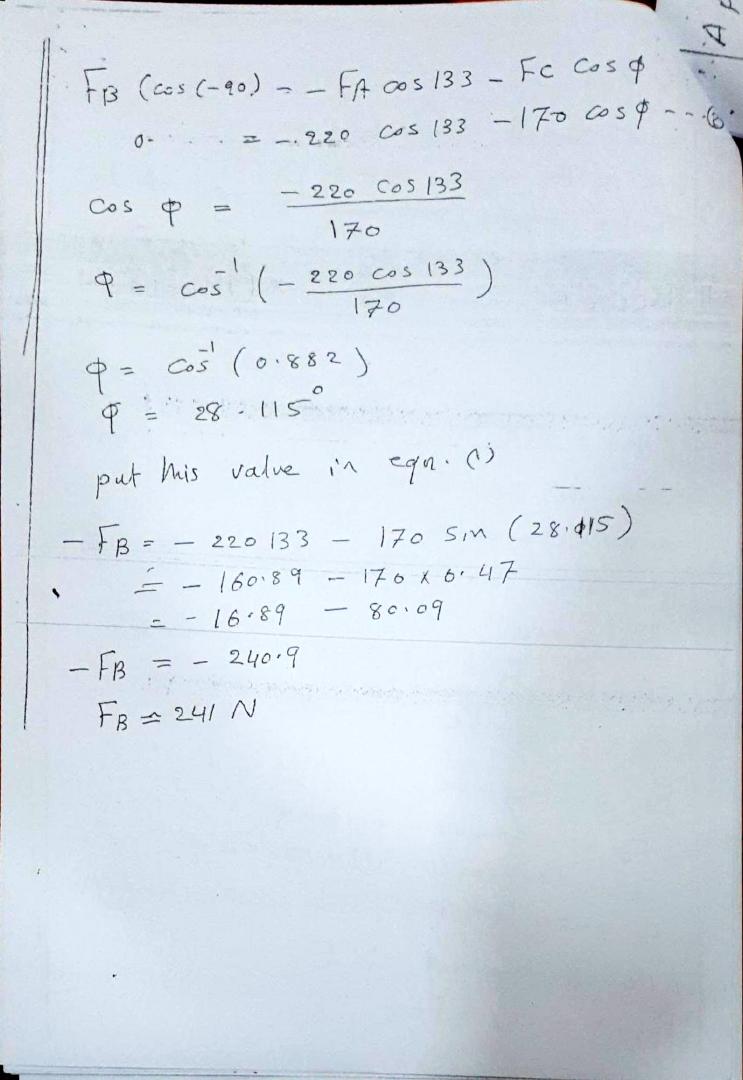 A F
FB (cos (-90) = - FA cos 133 - Fc cos φ
0 = - 220 cos 133 - 170 cos φ
cos φ = - 220 cos 133 / 170
φ = cos⁻¹ (- 220 cos 133 / 170)
φ = cos⁻¹ (0.882)
φ = 28.115°
put this value in eqn. (1)
- FB = - 220 133 - 170 sin (28.115)
= - 160.89 - 170 x 0.47
= - 16.89 - 80.09
- FB = - 240.9
FB ≃ 241 N